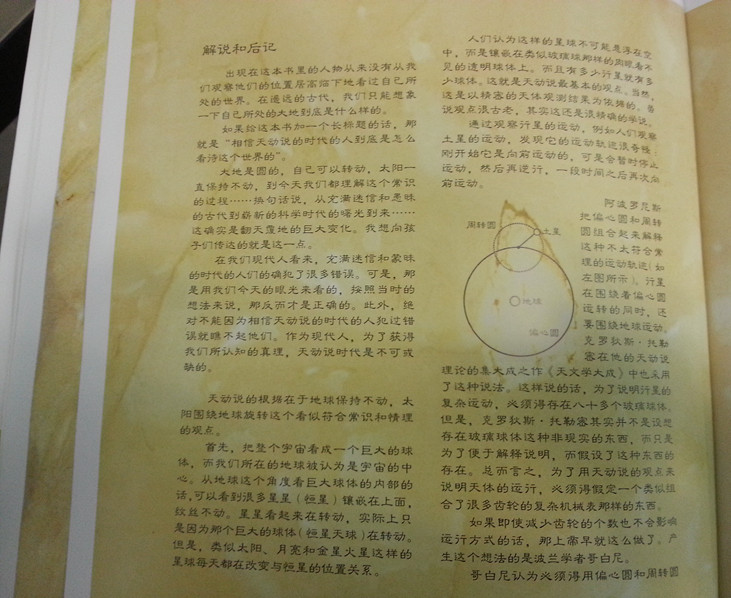 解说和后记
出现在这本书里的人物从来没有从我
们观察他们的位置居高临下地看过自己所
处的世界。在遥远的古代，我们只能想象
一下自己所处的大地到底是什么样的。
如果给这本书加一个长标题的话，那
就是“相信天动说的时代的人到底是怎么
看待这个世界的”。
大地是圆的，自己可以转动，太阳一
直保持不动，到今天我们都理解这个常识
的过程……换句话说，从充满迷信和愚昧
的古代到崭新的科学时代的曙光到来……
这确实是翻天覆地的巨大变化。我想向孩
子们传达的就是这一点。
在我们现代人看来，充满迷信和蒙昧
的时代的人们的确犯了很多错误。可是，那
是用我们今天的眼光来看的，按照当时的
想法来说，那反而才是正确的。此外，绝
对不能因为相信天动说的时代的人犯过错
误就瞧不起他们。作为现代人，为了获得
我们所认知的真理，天动说时代是不可或
缺的。
天动说的根据在于地球保持不动，太
阳围绕地球旋转这个看似符合常识和情理
的观点。
首先，把整个宇宙看成一个巨大的球
体，而我们所在的地球被认为是宇宙的中
心。从地球这个角度看巨大球体的内部的
话，可以看到很多星星（恒星）镶嵌在上面，
纹丝不动。星星看起来在转动，实际上只
是因为那个巨大的球体（恒星天球）在转动。
但是，类似太阳、月亮和金星火星这样的
星球每天都在改变与恒星的位置关系。
人们认为这样的星球不可能悬浮在空
中，而是镶嵌在类似玻璃球那样的肉眼看不
见的透明球体上。而且有多少行星就有多
少球体。这就是天动说最基本的观点。当然，
这是以精密的天体观测结果为依据的。虽
说观点很古老，其实这还是很精确的学说。
通过观察行星的运动，例如人们观察
土星的运动，发现它的运动轨迹很奇怪：
刚开始它是向前运动的，可是会暂时停止
运动，然后再逆行，一段时间之后再次向
前运动。
阿波罗尼斯
把偏心圆和周转
圆组合起来解释
这种不太符合常
理的运动轨迹（如
左图所示）。行星
在围绕着偏心圆
运转的同时，还
要围绕地球运动。
克罗狄斯·托勒
密在他的天动说
周转圆
土星
地球
偏心圆
理论的集大成之作《天文学大成》中也采用
了这种说法。这样说的话，为了说明行星的
复杂运动，必须得存在八十多个玻璃球体。
但是，克罗狄斯·托勒密其实并不是设想
存在玻璃球体这种非现实的东西，而只是
为了便于解释说明，而假设了这种东西的
存在。总而言之，为了用天动说的观点来
说明天体的运行，必须得假定一个类似组
合了很多齿轮的复杂机械表那样的东西。
如果即使减少齿轮的个数也不会影响
运行方式的话，那上帝早就这么做了。产
生这个想法的是波兰学者哥白尼。
哥白尼认为必须得用偏心圆和周转圆